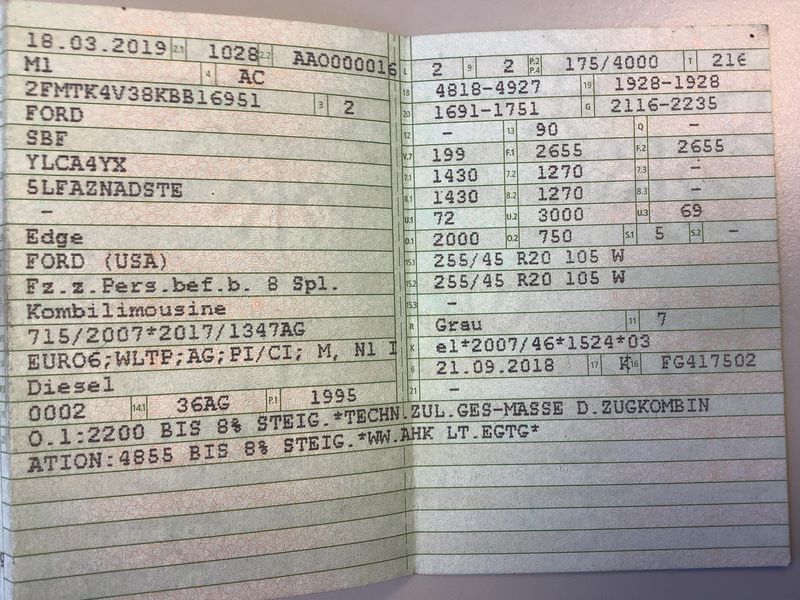 18.03.2019 2.1 1028 2.2 AAO000016
M1 4 AC
2FMTK4V38KBB16951 3 2
FORD
SBF
YLCA4YX
5LFAZNADSTE
-
Edge
FORD (USA)
Fz.z.Pers.bef.b. 8 Spl.
Kombilimousine
715/2007*2017/1347AG
EURO6;WLTP;AG;PI/CI; M, N1 I
Diesel
0002 14.1 36AG P.1 1995
L 2 9 2 P.2 P.4 175/4000 T 216
18 4818-4927 19 1928-1928
20 1691-1751 G 2116-2235
12 - 13 90 Q -
V.7 199 F.1 2655 F.2 2655
7.1 1430 7.2 1270 7.3 -
8.1 1430 8.2 1270 8.3 -
U.1 72 U.2 3000 U.3 69
O.1 2000 O.2 750 S.1 5 S.2 -
15.1 255/45 R20 105 W
15.2 255/45 R20 105 W
15.3 -
R Grau 11 7
K e1*2007/46*1524*03
6 21.09.2018 17 K 16 FG417502
21 -
O.1:2200 BIS 8% STEIG.*TECHN.ZUL.GES-MASSE D.ZUGKOMBIN
ATION:4855 BIS 8% STEIG.*WW.AHK LT.EGTG*